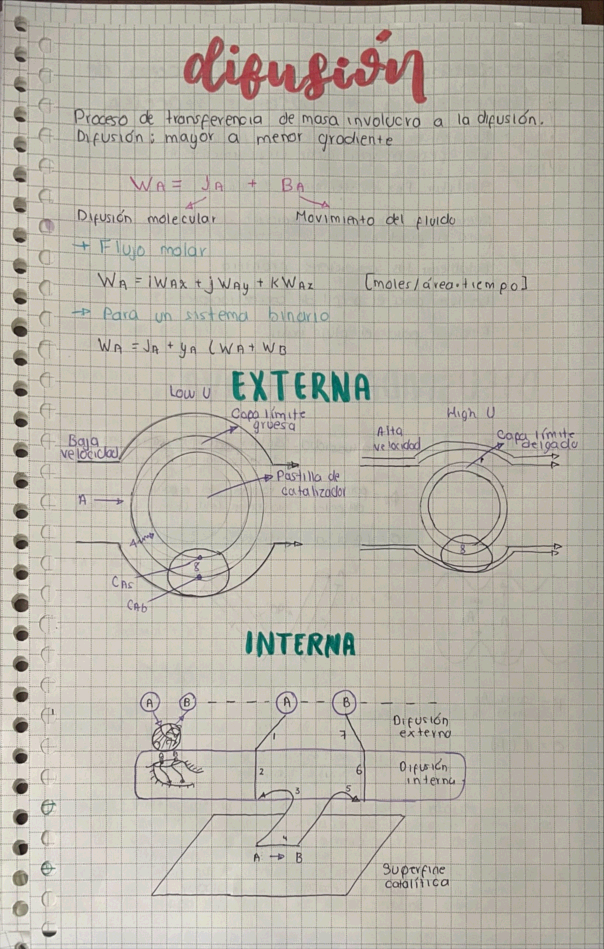 difusión
Proceso de transferencia de masa involucra a la difusión.
Difusión: mayor a menor gradiente
WA = JA + BA
Difusión molecular
Movimiento del fluido
→ Flujo molar
WA = iWAx + jWAy + kWAz [moles/área·tiempo]
→ Para un sistema binario
WA = JA + yA (WA + WB
EXTERNA
Low U
High U
Capa límite
gruesa
Baja
velocidad
Pastilla de
catalizador
A
A
δ
CAs
CAb
Alta
velocidad
Capa límite
delgada
δ
INTERNA
A B A B
1 7
Difusión
externa
2 6
Difusión
interna
3 5
4
A → B
Superfine
catalítica